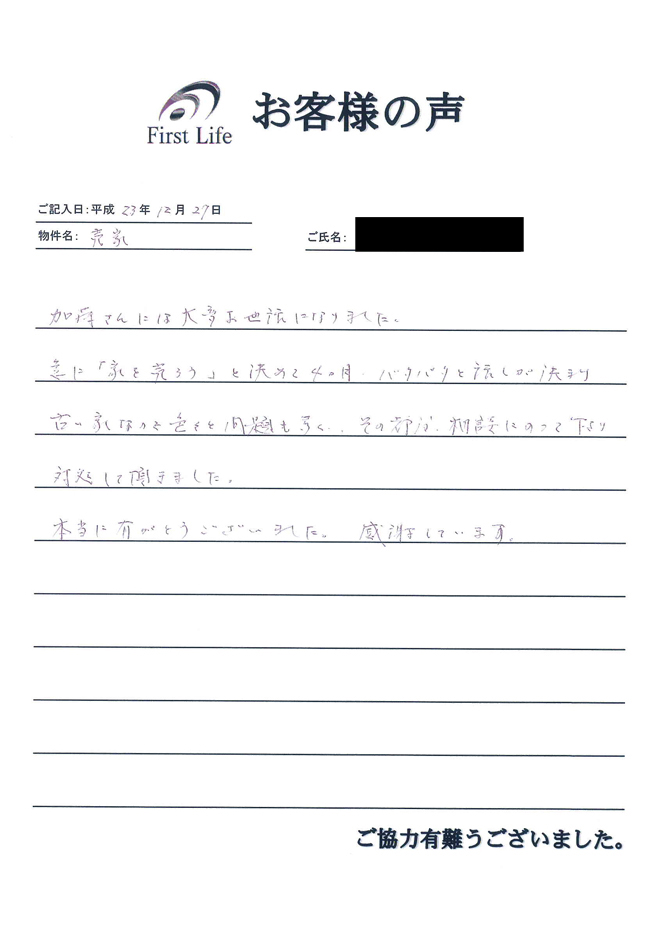 First Life
お客様の声
ご記入日:平成 23年 12月 27日
物件名: 売家
ご氏名:
加藤さんには大変お世話になりました。
急に「家を売ろう」と決めて4ヵ月、バタバタと話しが決まり
古い家なので色々と問題も多く、その都度、相談にのって下さり
対処して頂きました。
本当に有がとうございました。 感謝しています。
ご協力有難うございました。